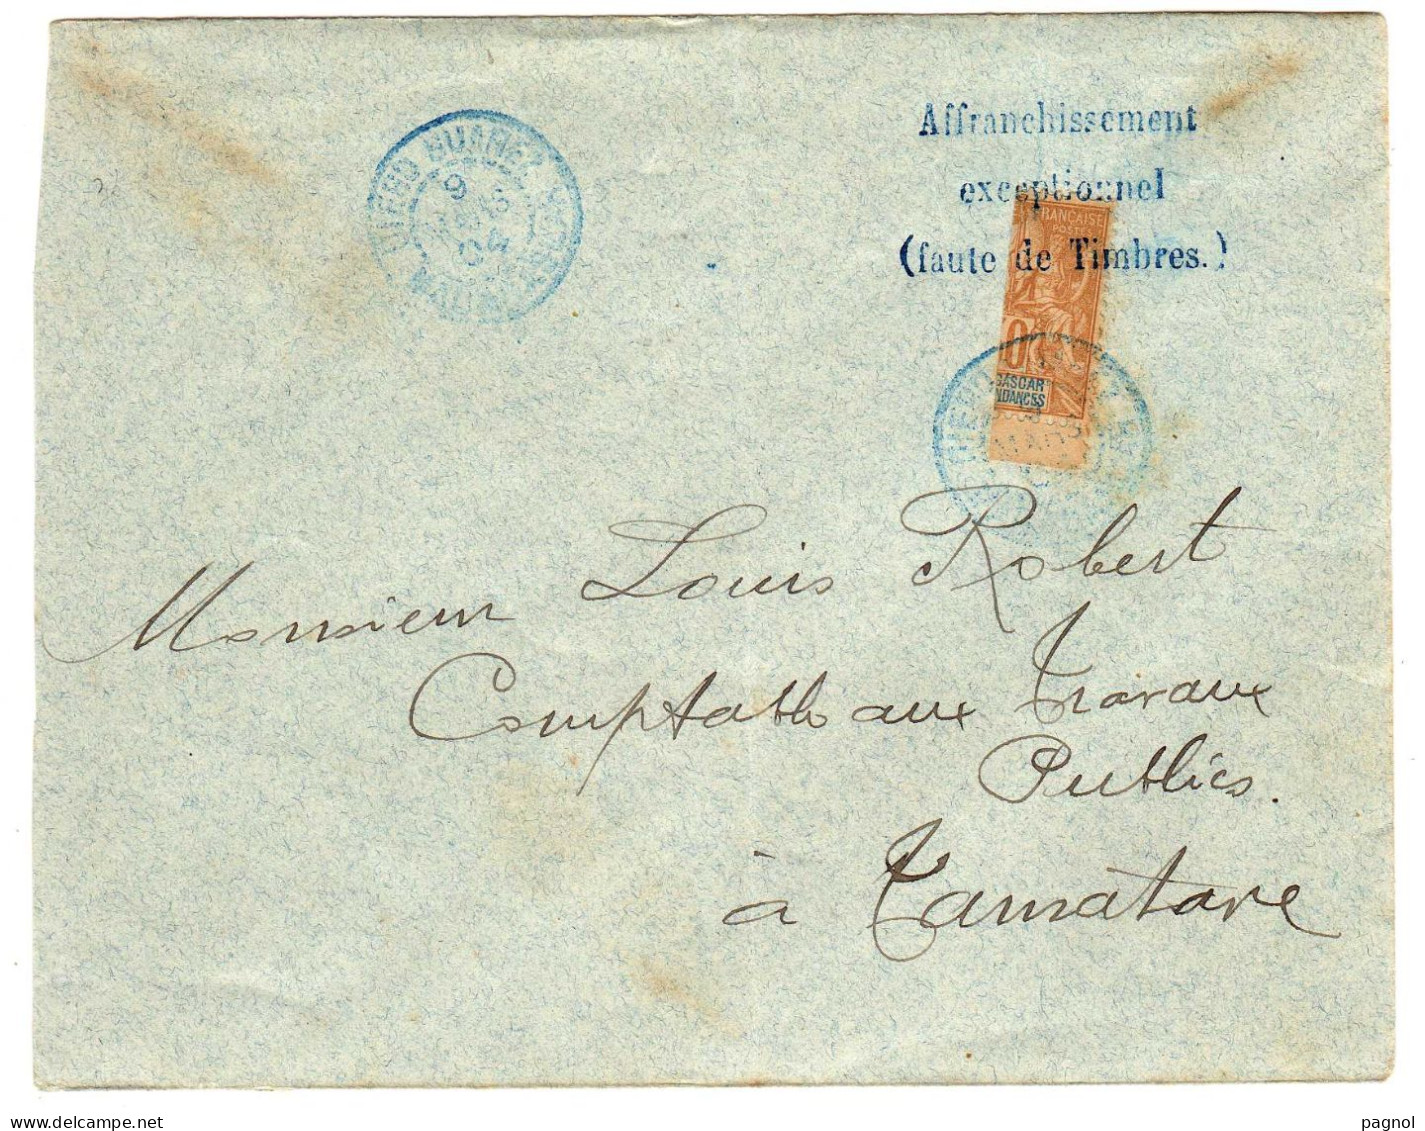 Affranchissement
exceptionnel
(faute de Timbres.)
DIEGO SUAREZ
9
MARS
04
FRANÇAISE
POSTE
0
GASCAR
NDANCES
MARS
Monsieur Louis Robert
Comptable aux Travaux
Publics.
à Tamatave
delcampe.net
pagnol